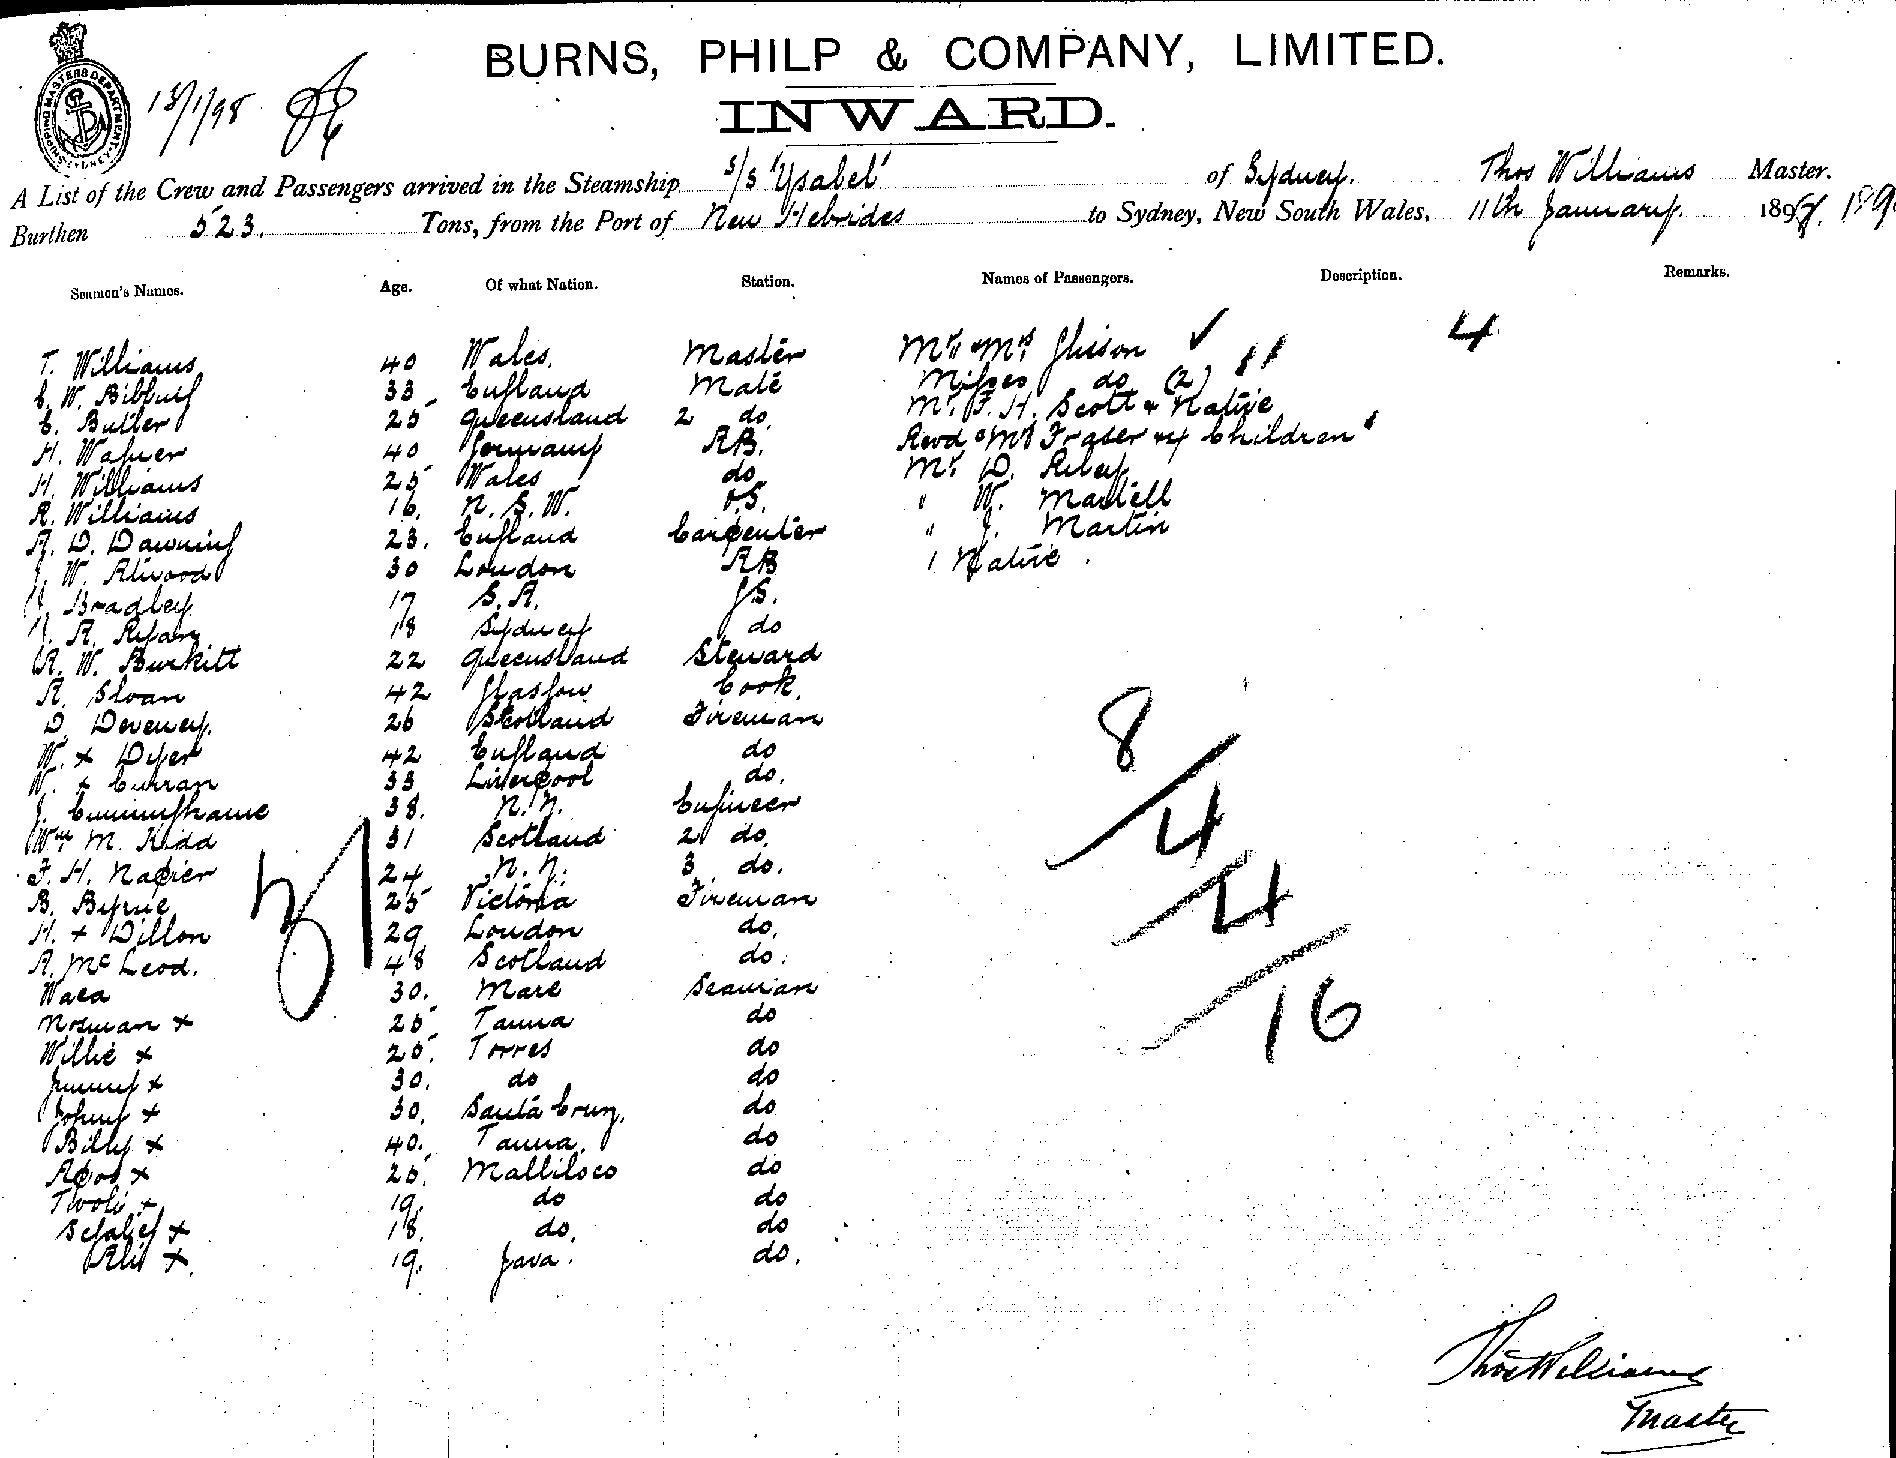 BURNS, PHILP & COMPANY, LIMITED.
INWARD.
SHIPPING MASTERS DEPARTMENT SYDNEY
13/1/98
A List of the Crew and Passengers arrived in the Steamship s/s 'Ysabel' of Sydney. Thos Williams Master.
Burthen 523. Tons, from the Port of New Hebrides to Sydney, New South Wales, 11th January 189
Seamen's Names. Age. Of what Nation. Station. Names of Passengers. Description. Remarks.
T. Williams 40 Wales. Master Mr & Mrs Glisson ✓ 4
W. 33 England Mate Misses do (2)
Butler 25 Queensland 2 do. Mr. F. H. Scott & Native
H. Wagner 40 Germany A.B. Revd & Mrs Fraser & 4 Children
H. Williams 25 Wales do Mr. D. Riley
R. Williams 16. N. S. W. O.S. " W. Martell
A. D. Downing 23. England Carpenter " J. Martin
J. W. Atwood 30 London AB 1 Native.
J. Bradley 17 S. A. O.S.
J. A. Ryan 18 Sydney do
A. W. Burkitt 22 Queensland Steward
A. Sloan 42 Glasgow Cook.
D. Deveney. 26 Scotland Fireman
W. x Dyer 42 England do
W. x Curran 33 Liverpool do.
J. Cunninghame 38. N.Z. Engineer
Wm M. Kidd 31 Scotland 2 do.
F. H. Napier 24 N.Z. 3 do.
B. Byrne 25 Victoria Fireman
H. x Dillon 29 London do.
A. Mc Leod. 48 Scotland do.
Waea 30. Mare Seaman
Norman x 25 Tanna do
Willie x 25. Torres do
Jimmy x 30. do do
Johny x 30. Santa Cruz. do
Billy x 40. Tanna. do
Apoo x 25. Mallicoco do
Tivoli x 19. do do
x 18. do. do
Ali x 19. Java. do.
31
8/4/4/16
Thos Williams
Master